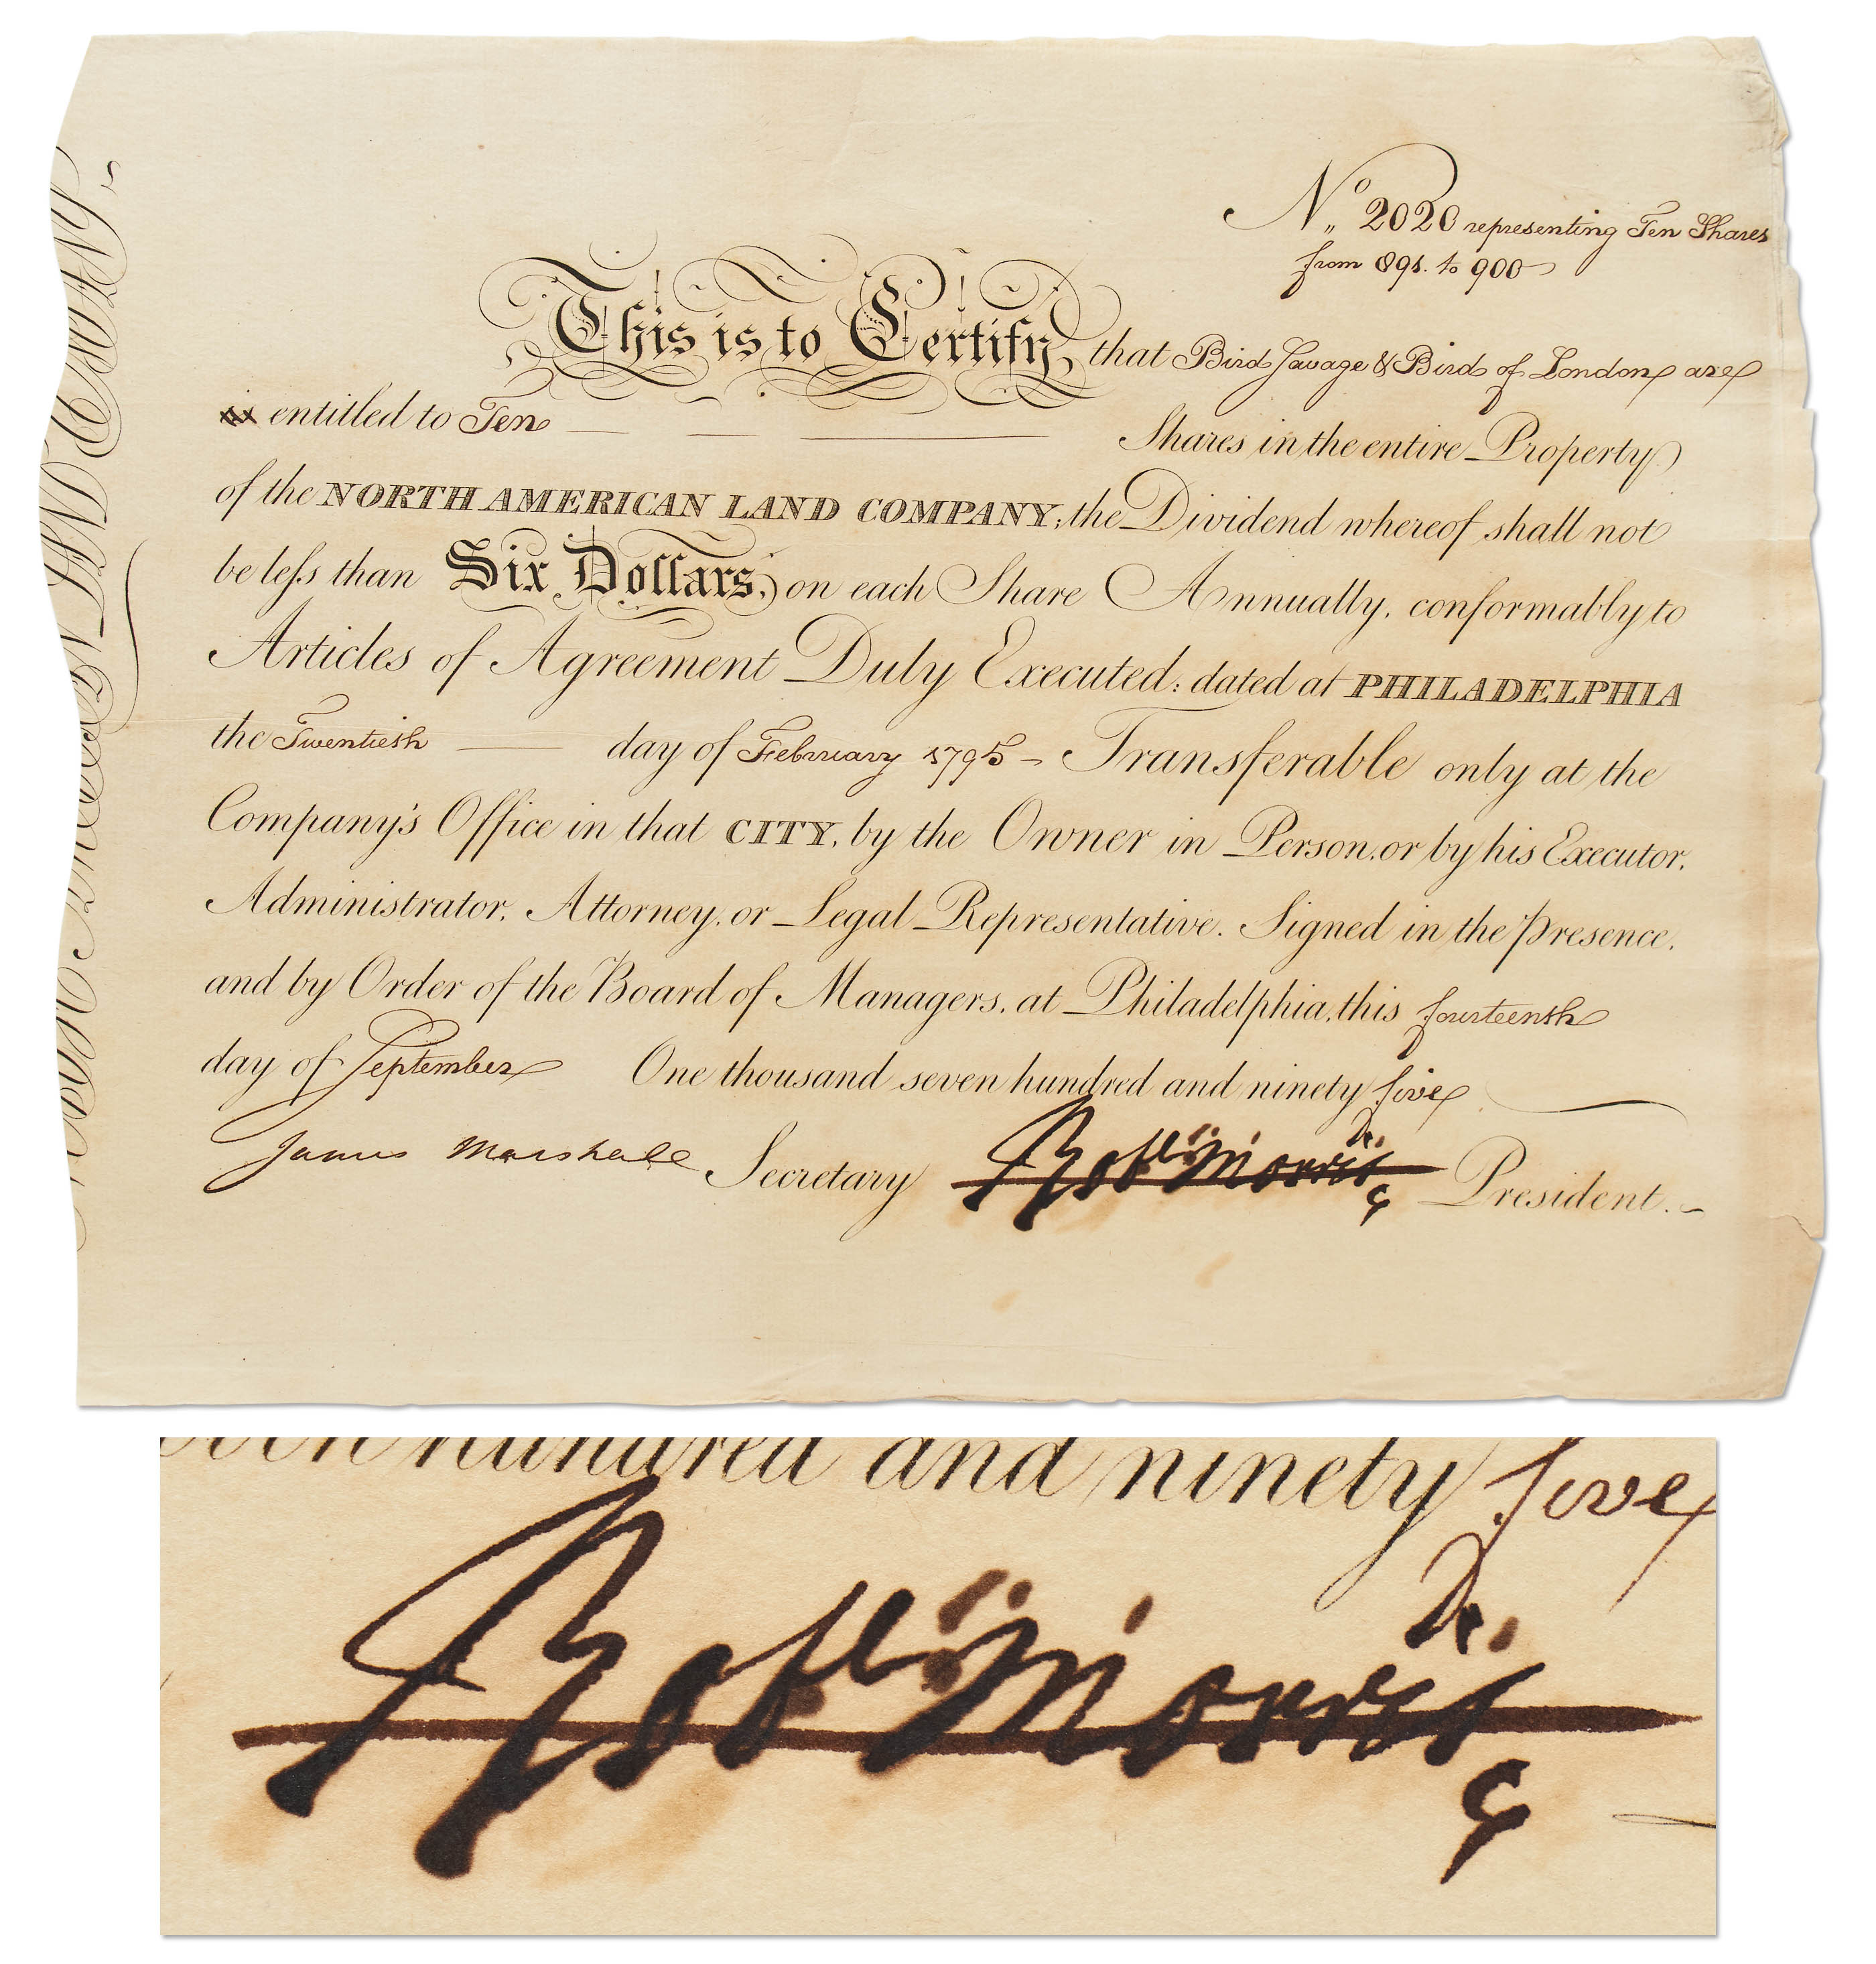 No 2020 representing Ten Shares
from 891. to 900
This is to Certify, that Bird Savage & Bird of London are
is entitled to Ten Shares in the entire Property
of the NORTH AMERICAN LAND COMPANY; the Dividend whereof shall not
be less than Six Dollars, on each Share Annually, conformably to
Articles of Agreement Duly Executed: dated at PHILADELPHIA
the Twentieth day of February 1795 Transferable only at the
Company's Office in that CITY, by the Owner in Person, or by his Executor,
Administrator, Attorney, or Legal Representative. Signed in the Presence,
and by Order of the Board of Managers, at Philadelphia, this fourteenth
day of September One thousand seven hundred and ninety five
James Marshall Secretary Robt Morris President.
hundred and ninety five
Robt Morris